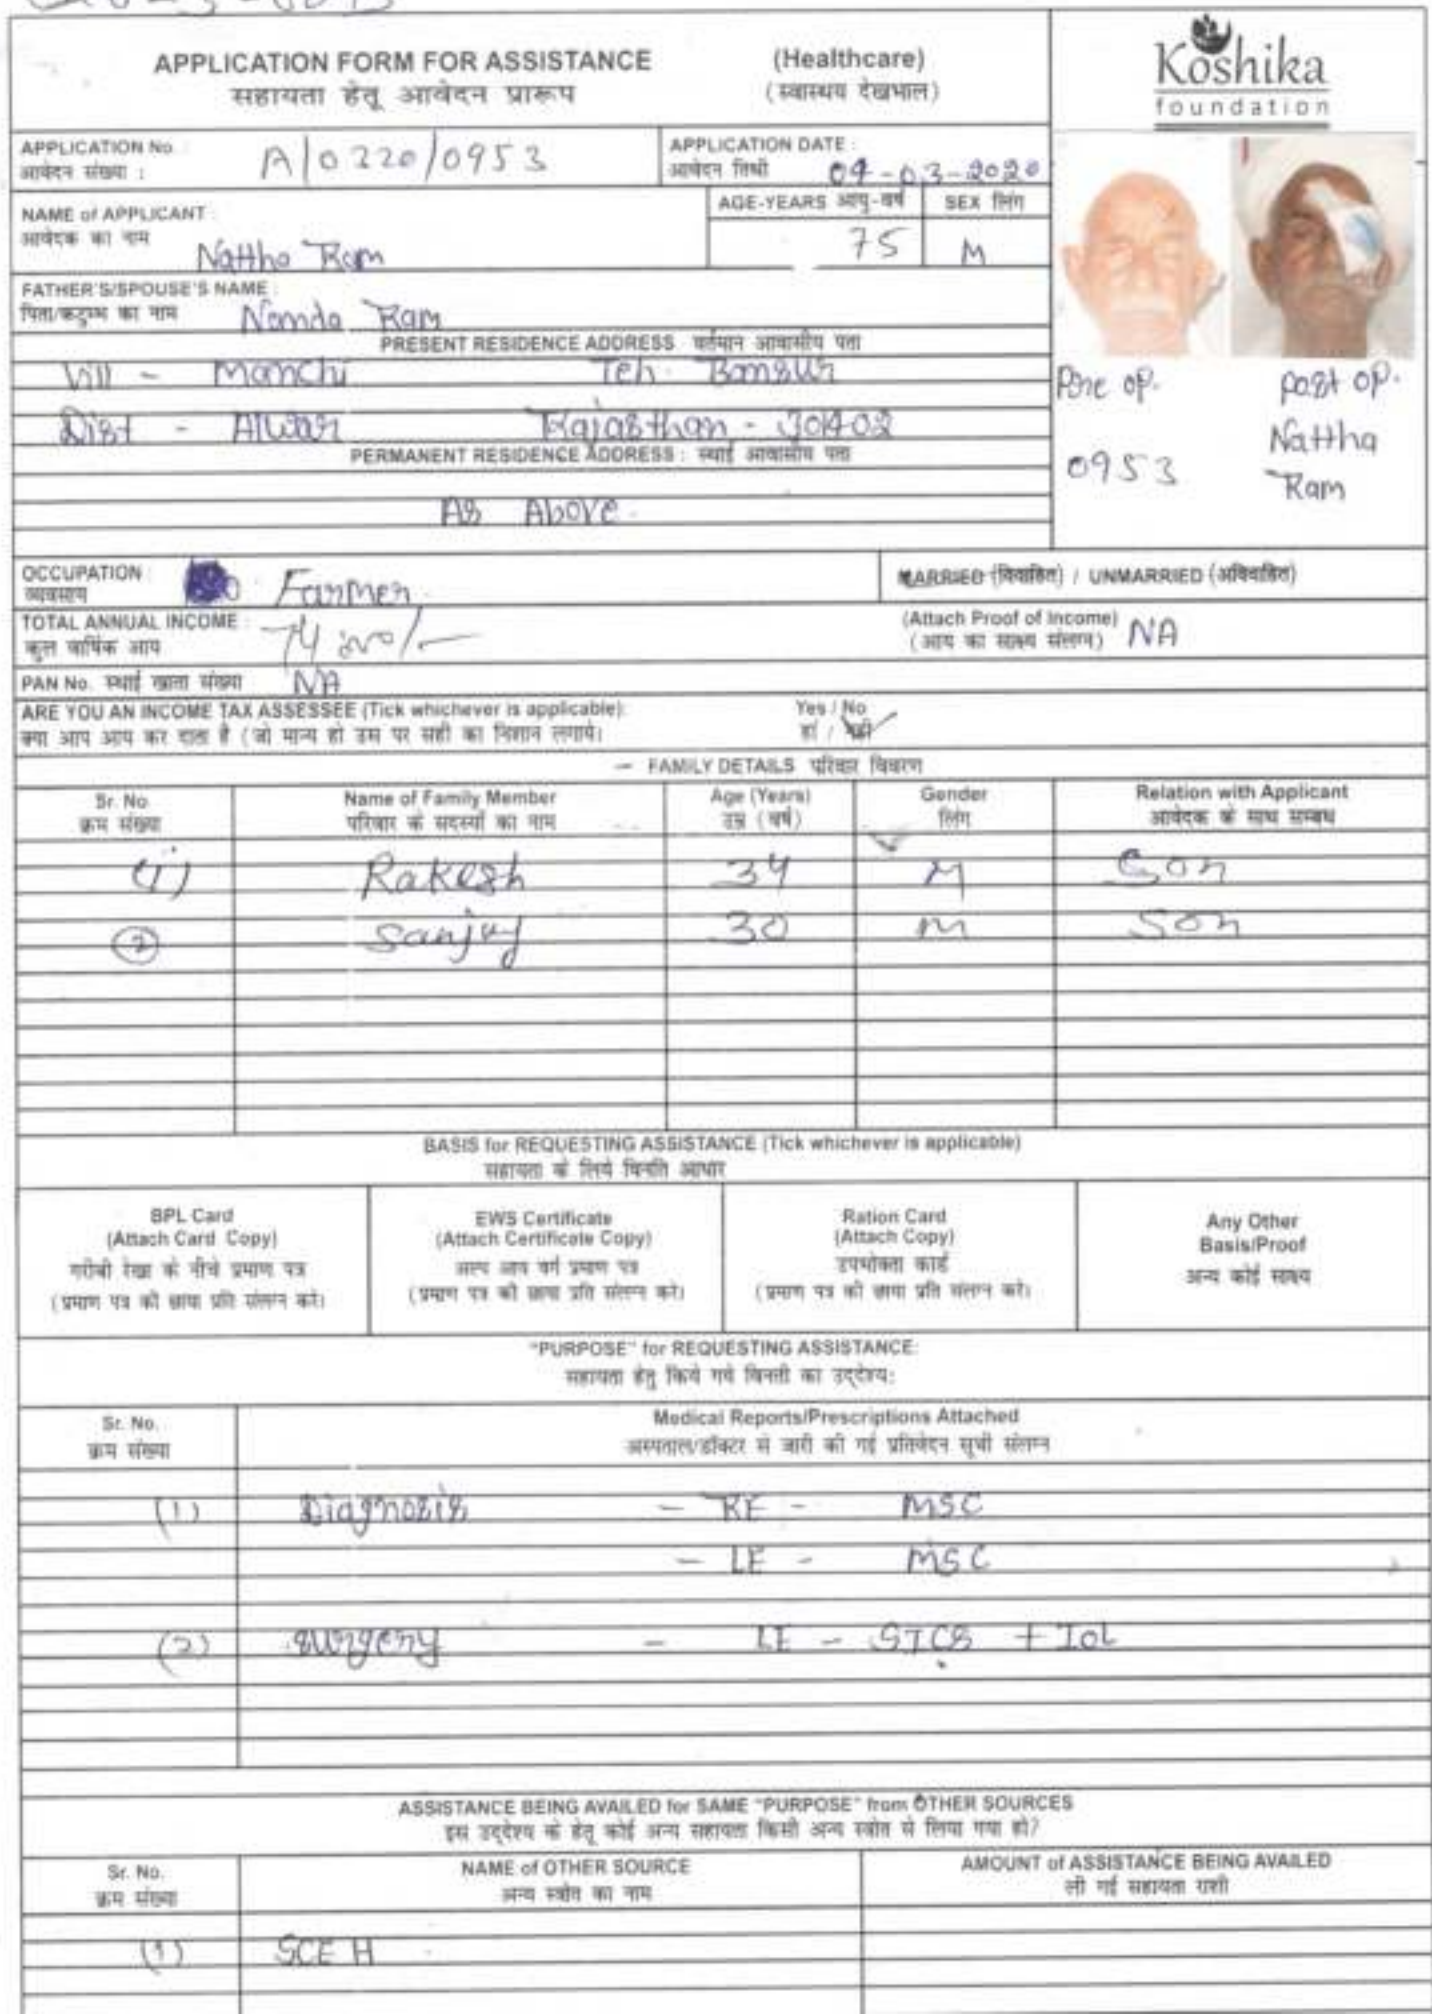 APPLICATION FORM FOR ASSISTANCE (Healthcare)
सहायता हेतू आवेदन प्रारूप (स्वास्थय देखभाल)
Koshika
foundation
APPLICATION No. : A/0320/0953
आवेदन संख्या :
APPLICATION DATE :
आवेदन तिथी 04-03-2020
NAME of APPLICANT :
आवेदक का नाम Nattho Ram
AGE-YEARS आयु-वर्ष 75
SEX लिंग M
FATHER'S/SPOUSE'S NAME :
पिता/कटुम्भ का नाम Nomda Ram
PRESENT RESIDENCE ADDRESS वर्तमान आवासीय पता
Vill - Manchi Teh. Bansur
Dist - Alwar Rajasthan - 301402
PERMANENT RESIDENCE ADDRESS : स्थाई आवासीय पता
As Above.
Pre op. Post op.
0953 Nattha
Ram
OCCUPATION :
व्यवसाय Farmer
MARRIED (विवाहित) / UNMARRIED (अविवाहित)
TOTAL ANNUAL INCOME :
कुल वार्षिक आय
(Attach Proof of Income)
(आय का साक्ष्य संलग्न) NA
PAN No. स्थाई खाता संख्या NA
ARE YOU AN INCOME TAX ASSESSEE (Tick whichever is applicable): Yes / No
क्या आप आय कर दाता है (जो मान्य हो उस पर सही का निशान लगाये। हां / नहीं
FAMILY DETAILS परिवार विवरण
Sr. No. Name of Family Member Age (Years) Gender Relation with Applicant
क्रम संख्या परिवार के सदस्यों का नाम उम्र (वर्ष) लिंग आवेदक के साथ सम्बध
(1) Rakesh 34 M Son
(2) Sanjay 30 M Son
BASIS for REQUESTING ASSISTANCE (Tick whichever is applicable)
सहायता के लिये विनति आधार
BPL Card
(Attach Card Copy)
गरीबी रेखा के नीचे प्रमाण पत्र
(प्रमाण पत्र की छाया प्रति संलग्न करे।
EWS Certificate
(Attach Certificate Copy)
अल्प आय वर्ग प्रमाण पत्र
(प्रमाण पत्र की छाया प्रति संलग्न करे।
Ration Card
(Attach Copy)
उपभोक्ता कार्ड
(प्रमाण पत्र की छाया प्रति संलग्न करे।
Any Other
Basis/Proof
अन्य कोई साक्ष्य
"PURPOSE" for REQUESTING ASSISTANCE:
सहायता हेतु किये गये विनती का उद्देश्य:
Sr. No. Medical Reports/Prescriptions Attached
क्रम संख्या अस्पताल/डॉक्टर से जारी की गई प्रतिवेदन सूची संलग्न
(1) Diagnosis - RE - MSC
- LE - MSC
(2) Surgery - LE - SICS + IOL
ASSISTANCE BEING AVAILED for SAME "PURPOSE" from OTHER SOURCES
इस उद्देश्य के हेतू कोई अन्य सहायता किसी अन्य स्त्रोत से लिया गया हो?
Sr. No. NAME of OTHER SOURCE AMOUNT of ASSISTANCE BEING AVAILED
क्रम संख्या अन्य स्त्रोत का नाम ली गई सहायता राशी
(1) SCEH